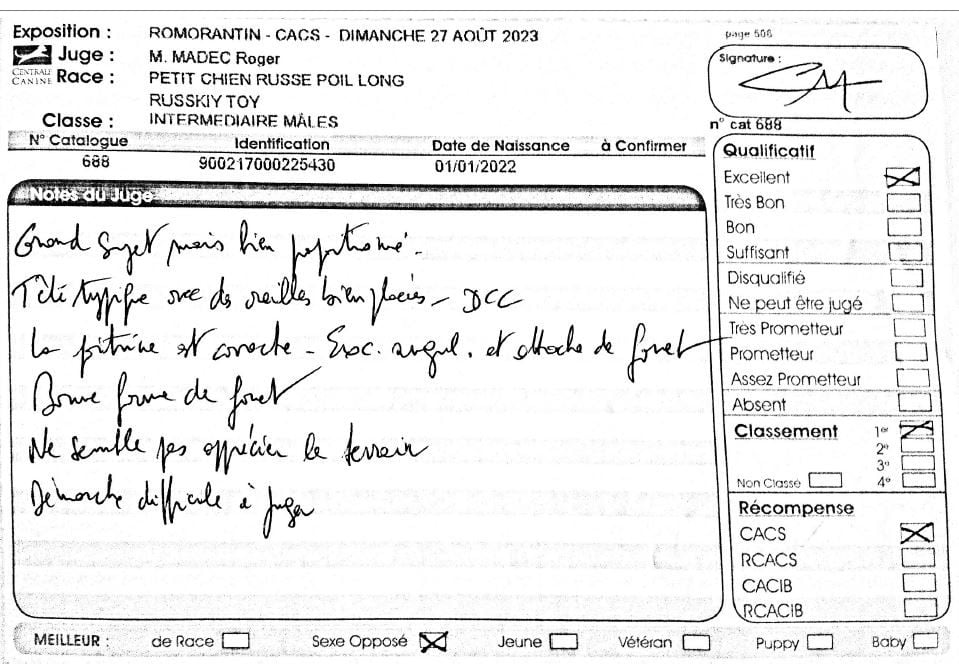 Exposition : ROMORANTIN - CACS - DIMANCHE 27 AOÛT 2023
page 506
CENTRALE CANINE
Juge : M. MADEC Roger
Race : PETIT CHIEN RUSSE POIL LONG
RUSSKIY TOY
Classe : INTERMEDIAIRE MÂLES
Signature :
n° cat 688
N° Catalogue Identification Date de Naissance à Confirmer
688 900217000225430 01/01/2022
Notes du Juge
Grand sujet mais bien proportionné.
Tête typique avec des oreilles bien placées - DCC
La poitrine est correcte - Exc. angul. et attache de fouet
Bonne forme de fouet
Ne semble pas apprécier le terrain
Démarche difficile à juger
Qualificatif
Excellent
Très Bon
Bon
Suffisant
Disqualifié
Ne peut être jugé
Très Prometteur
Prometteur
Assez Prometteur
Absent
Classement 1er
2e
3e
Non Classé 4e
Récompense
CACS
RCACS
CACIB
RCACIB
MEILLEUR : de Race Sexe Opposé Jeune Vétéran Puppy Baby